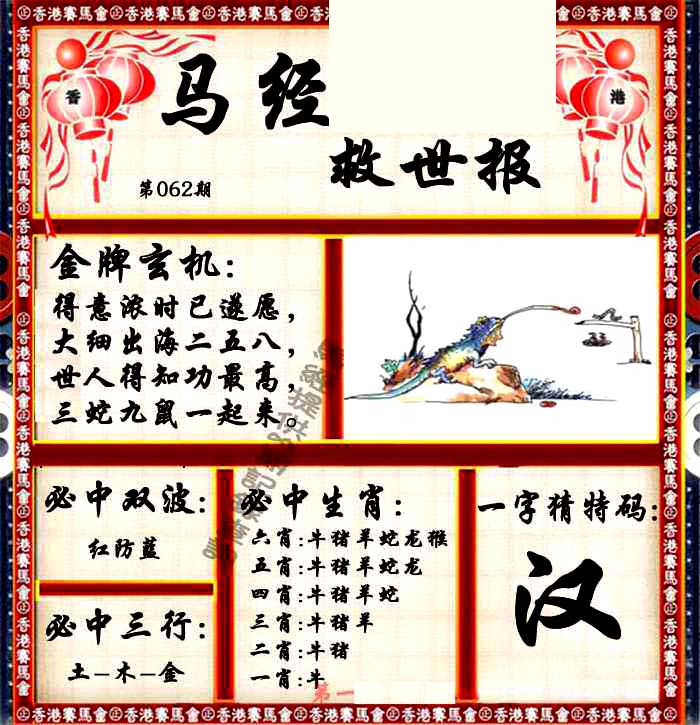 香港賽馬會
香 港
马经
救世报
第062期
金牌玄机:
得意浓时已遂愿,
大细出海二五八,
世人得知功最高,
三蛇九鼠一起来。
必中双波:
红防蓝
必中三行:
土-木-金
必中生肖:
六肖:牛猪羊蛇龙猴
五肖:牛猪羊蛇龙
四肖:牛猪羊蛇
三肖:牛猪羊
二肖:牛猪
一肖:牛
第一
一字猜特码:
汉